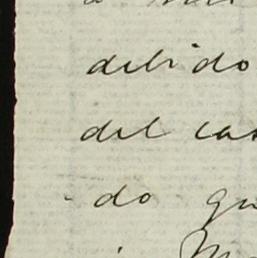 debido
del cas
do qu